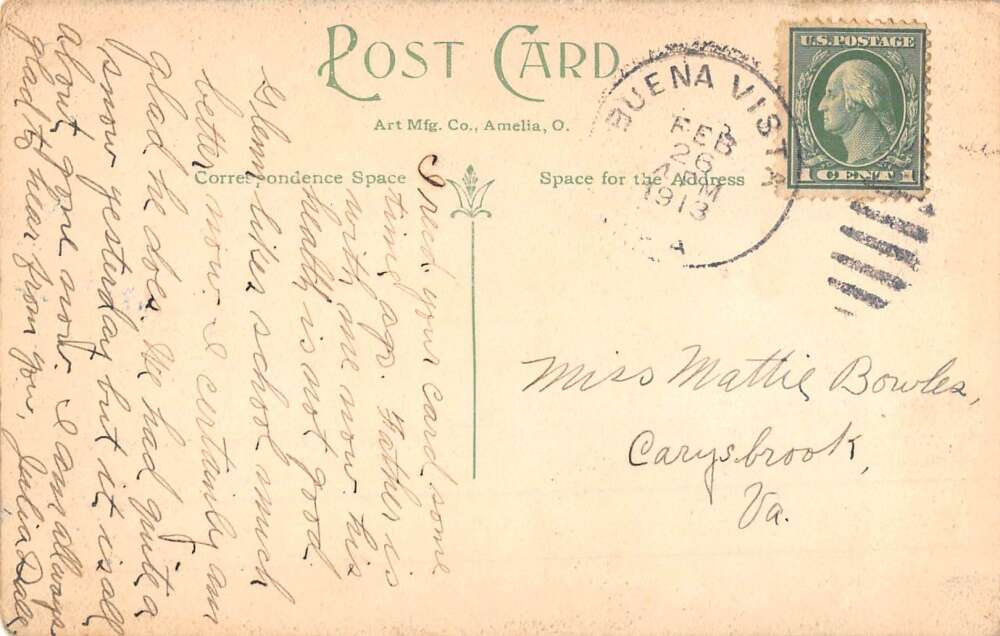 POST CARD
Art Mfg. Co., Amelia, O.
Correspondence Space
Space for the Address
U.S. POSTAGE
1 CENT 1
BUENA VISTA
FEB
26
M
1913
A
Miss Mattie Bowles,
Carysbrook,
Va.
I recd. your card some
time ago. Father is
with me now. his
health is not good
Glenn likes school much
better now. I certainly am
glad he does. We had quite a
snow yesterday but it is all
about gone now. I am allways
glad to hear from you, Julia